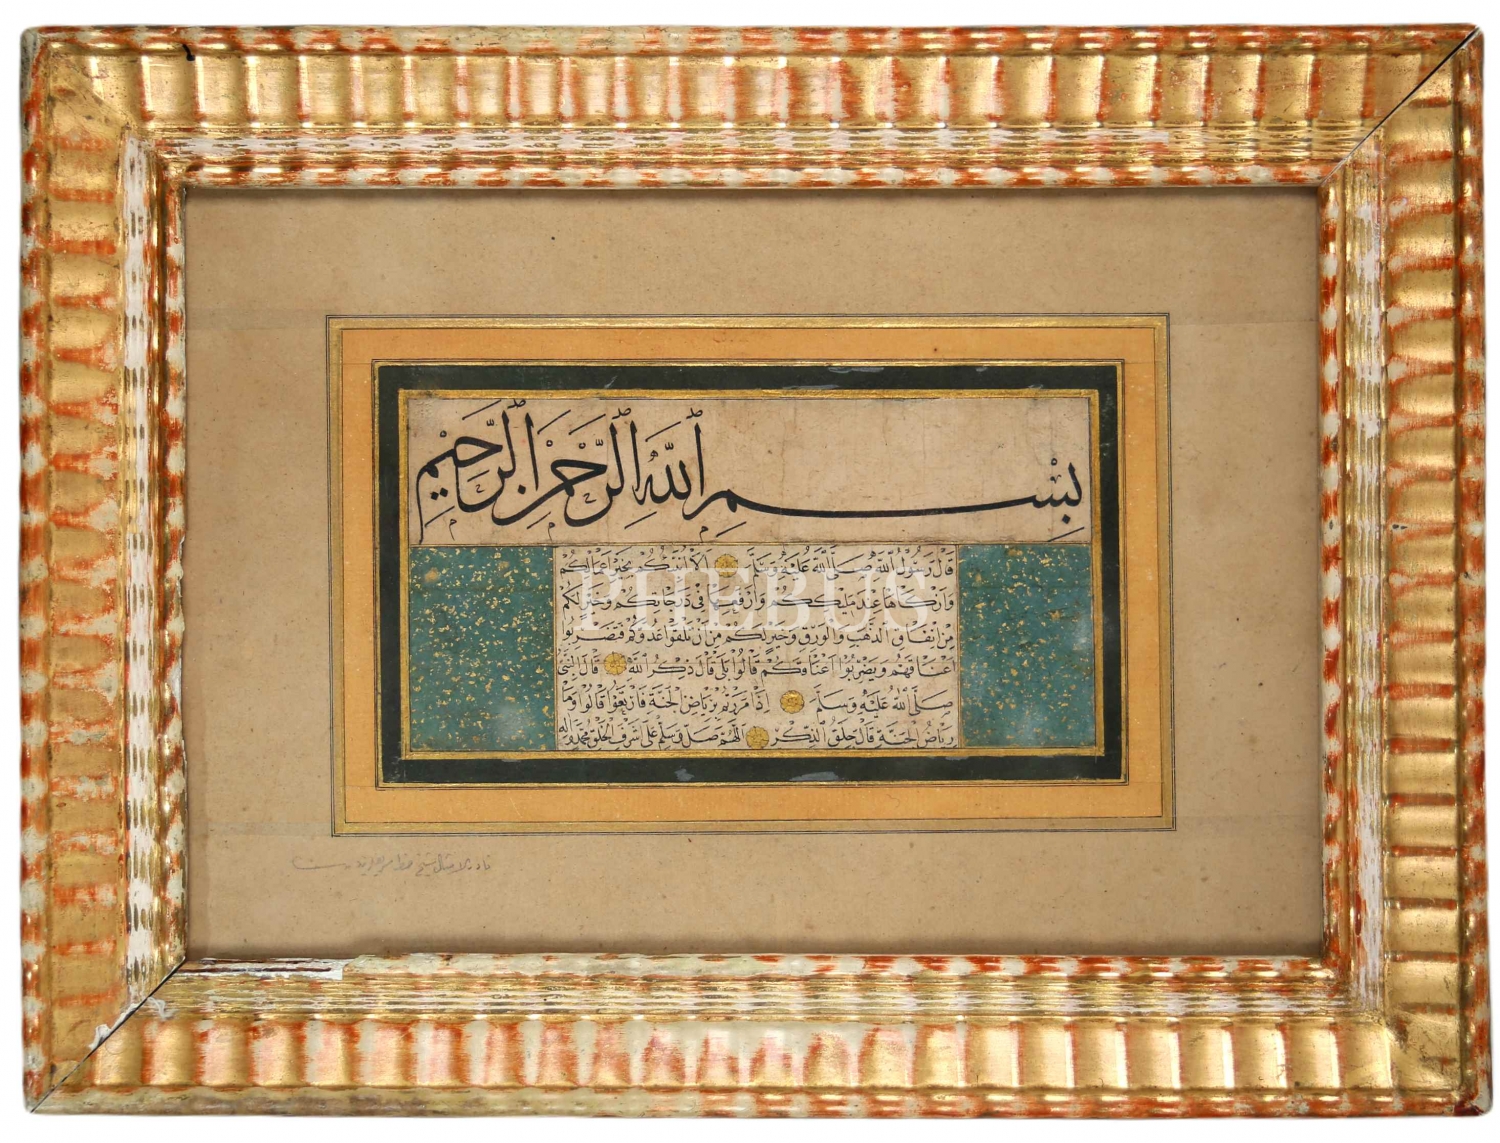 بِسْمِ اللّٰهِ الرَّحْمٰنِ الرَّحِيْمِ
قَالَ رَسُولُ اللّٰهِ صَلَّى اللّٰهُ عَلَيْهِ وَسَلَّمَ اَلَا اُنَبِّئُكُمْ بِخَيْرِ اَعْمَالِكُمْ
وَاَزْكَاهَا عِنْدَ مَلِيكِكُمْ وَاَرْفَعِهَا فِي دَرَجَاتِكُمْ وَخَيْرٍ لَكُمْ
مِنْ اِنْفَاقِ الذَّهَبِ وَالْوَرِقِ وَخَيْرٍ لَكُمْ مِنْ اَنْ تَلْقَوْا عَدُوَّكُمْ فَتَضْرِبُوا
اَعْنَاقَهُمْ وَيَضْرِبُوا اَعْنَاقَكُمْ قَالُوا بَلَى قَالَ ذِكْرُ اللّٰهِ قَالَ النَّبِيُّ
صَلَّى اللّٰهُ عَلَيْهِ وَسَلَّمَ اِذَا مَرَرْتُمْ بِرِيَاضِ الْجَنَّةِ فَارْتَعُوا قَالُوا وَمَا
رِيَاضُ الْجَنَّةِ قَالَ حِلَقُ الذِّكْرِ اَللّٰهُمَّ صَلِّ وَسَلِّمْ عَلَى اَشْرَفِ الْخَلْقِ مُحَمَّدٍ وَاٰلِهِ
PHEBUS